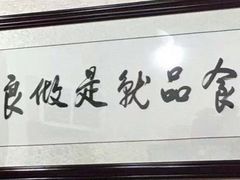 食品就是做良